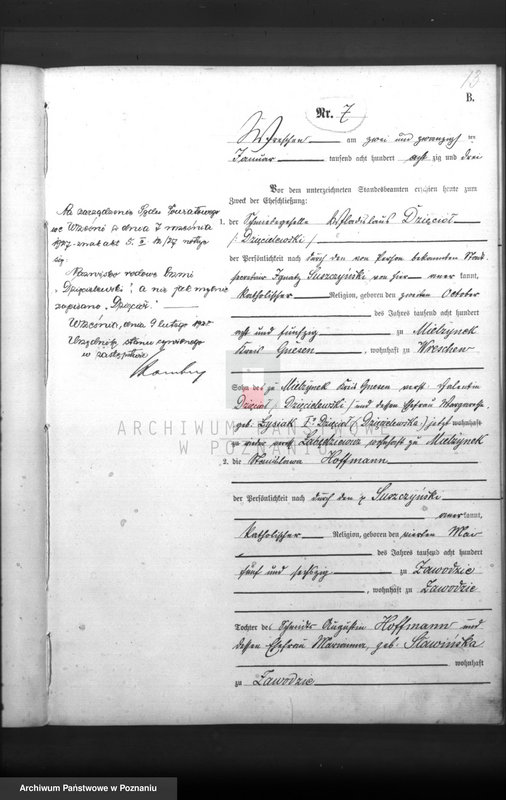 13
B.
Nr. 7
Wreschen am zwei und zwanzig ten
Januar tausend acht hundert acht zig und drei
Vor dem unterzeichneten Standesbeamten erschien heute zum
Zweck der Eheschließung:
1. der Schmiedegeselle Wladislaus Dzięcioł
/: Dzięcielewski :/
der Persönlichkeit nach durch den von Person bekannten Stadt-
secretair Ignatz Suszczyński von hier aner kannt,
katholischer Religion, geboren den zweiten October
des Jahres tausend acht hundert
acht und fünfzig zu Mielzynek
Kreis Gnesen, wohnhaft zu Wreschen
Sohn des zu Mielzynek Kreis Gnesen verst. Valentin
Dzięcioł /: Dzięcielewski :/ und dessen Ehefrau Margaretha,
geb. Lysiak I: Dzięcioł (Dzięcielewska) jetzt
zu verst. wohnhaft zu Mielzynek
2. die Stanislawa Hoffmann
der Persönlichkeit nach durch den p Suszczyński
aner kannt,
katholischer Religion, geboren den vierten Mai
des Jahres tausend acht hundert
fünf und sechszig zu Zawodzie
, wohnhaft zu Zawodzie
Tochter des Schmieds Augustin Hoffmann und
dessen Ehefrau Marianna, geb. Sławińska
wohnhaft
zu Zawodzie
Na zarządzenie Sądu Powiatowego
we Wrześni z dnia 7 września
1927 znak akt 5. II. 12/27 notuje
się:
Nazwisko rodowe brzmi
"Dzięcielewski", a nie jak mylnie
zapisano "Dzięcioł".
Września, dnia 9 lutego 1928
Urzędnik stanu cywilnego
w zastępstwie
ARCHIWUM PAŃSTWOWE
W POZNANIU
Archiwum Państwowe w Poznaniu